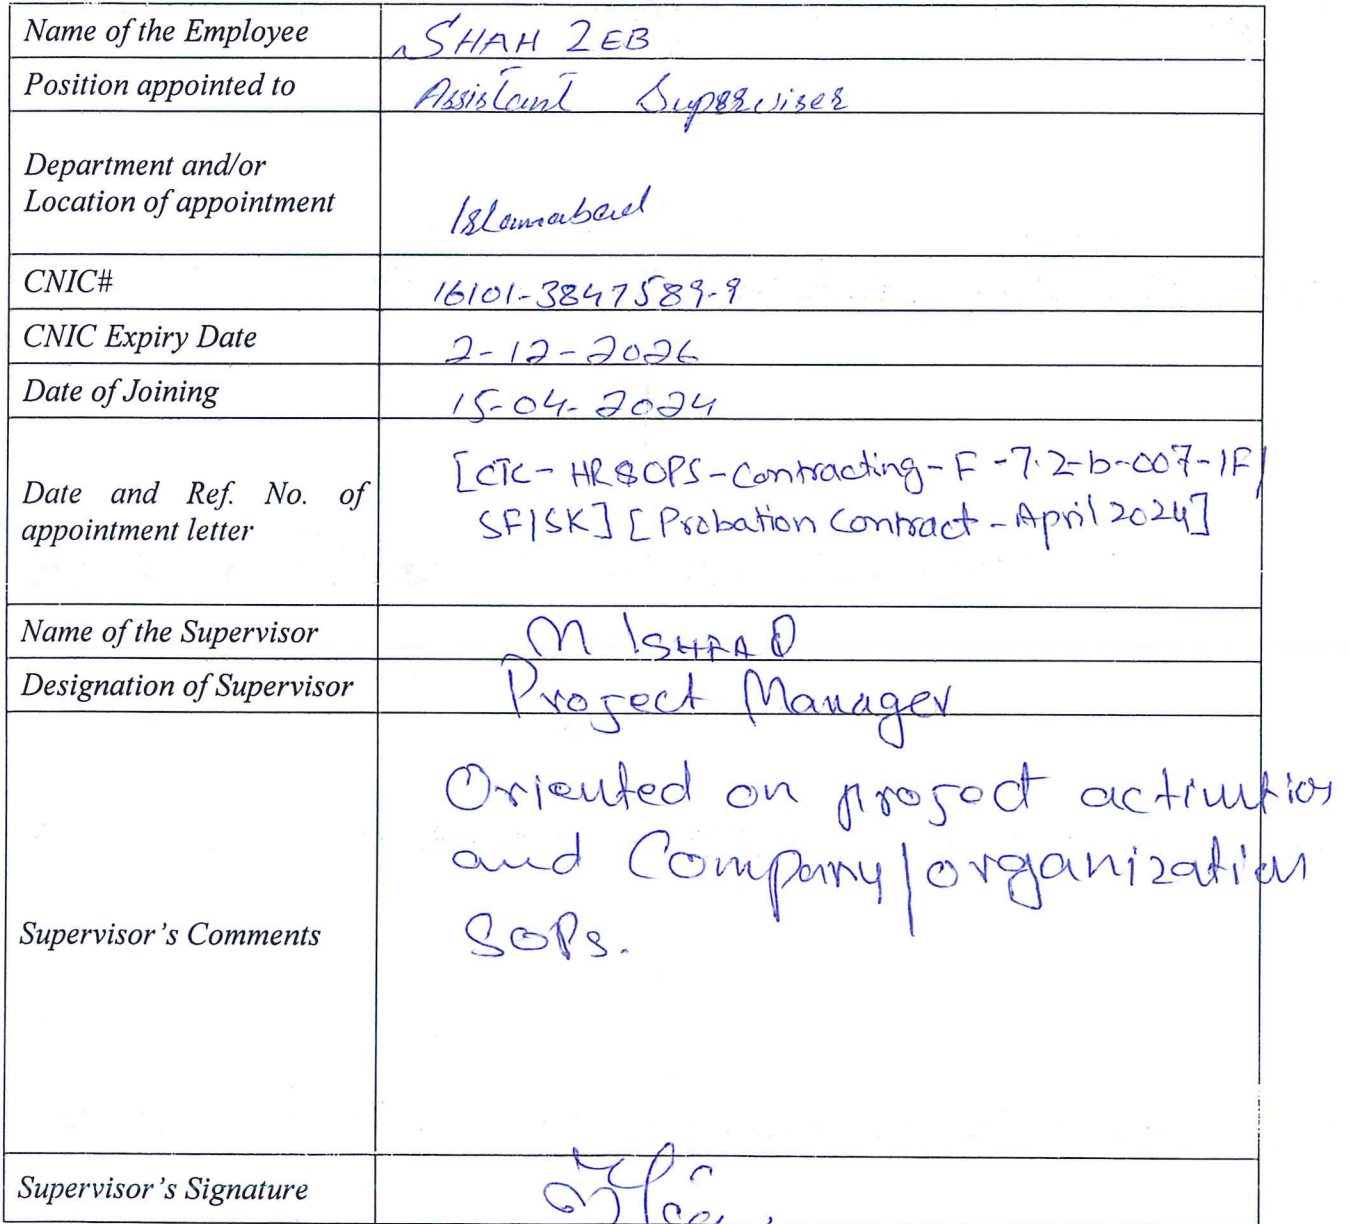 Name of the Employee SHAH ZEB
Position appointed to Assistant Superviser
Department and/or
Location of appointment Islamabad
CNIC# 16101-3847589-9
CNIC Expiry Date 2-12-2026
Date of Joining 15-04-2024
Date and Ref. No. of [CTC-HR&OPS-Contracting-F-7.2-b-007-IF/
appointment letter SF/SK] [Probation Contract-April 2024]
Name of the Supervisor M ISHFAQ
Designation of Supervisor Project Manager
Oriented on project activities
and Company/organization
Supervisor's Comments SOPs.
Supervisor's Signature